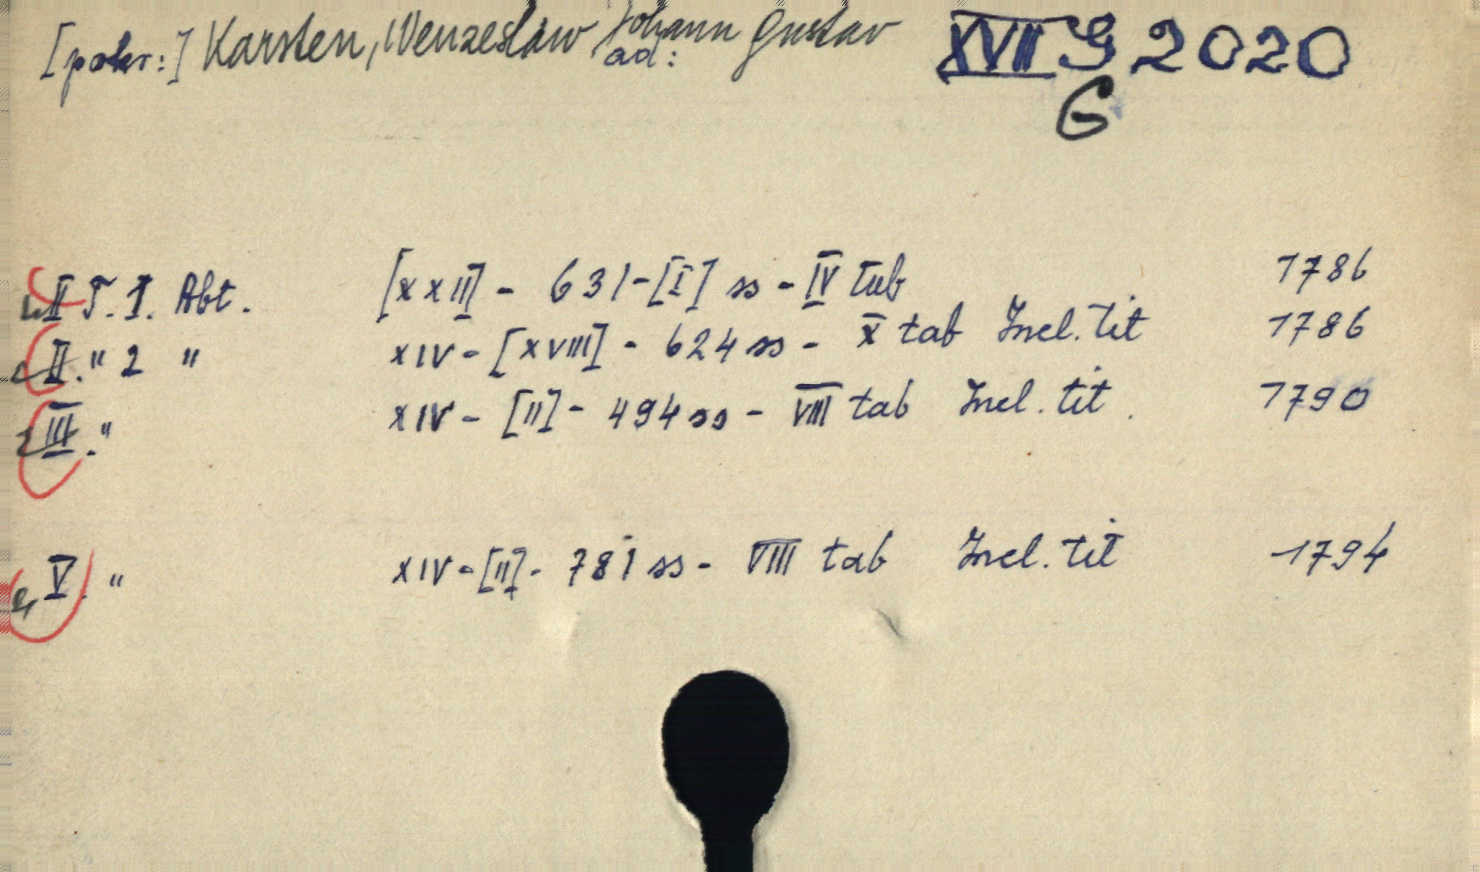 [pokr:] Karsten, Wenzeslaw Johann Gustav XVII G 2020
ad:
G
II T. 1. Abt. [XXII] - 631-[I] ss - IV tab 1786
II. " 2 " XIV - [XVIII] - 624 ss - X tab Incl. tit 1786
III. " XIV - [II] - 494 ss - VIII tab Incl. tit. 1790
V. " XIV - [II] - 781 ss - VIII tab Incl. tit 1794